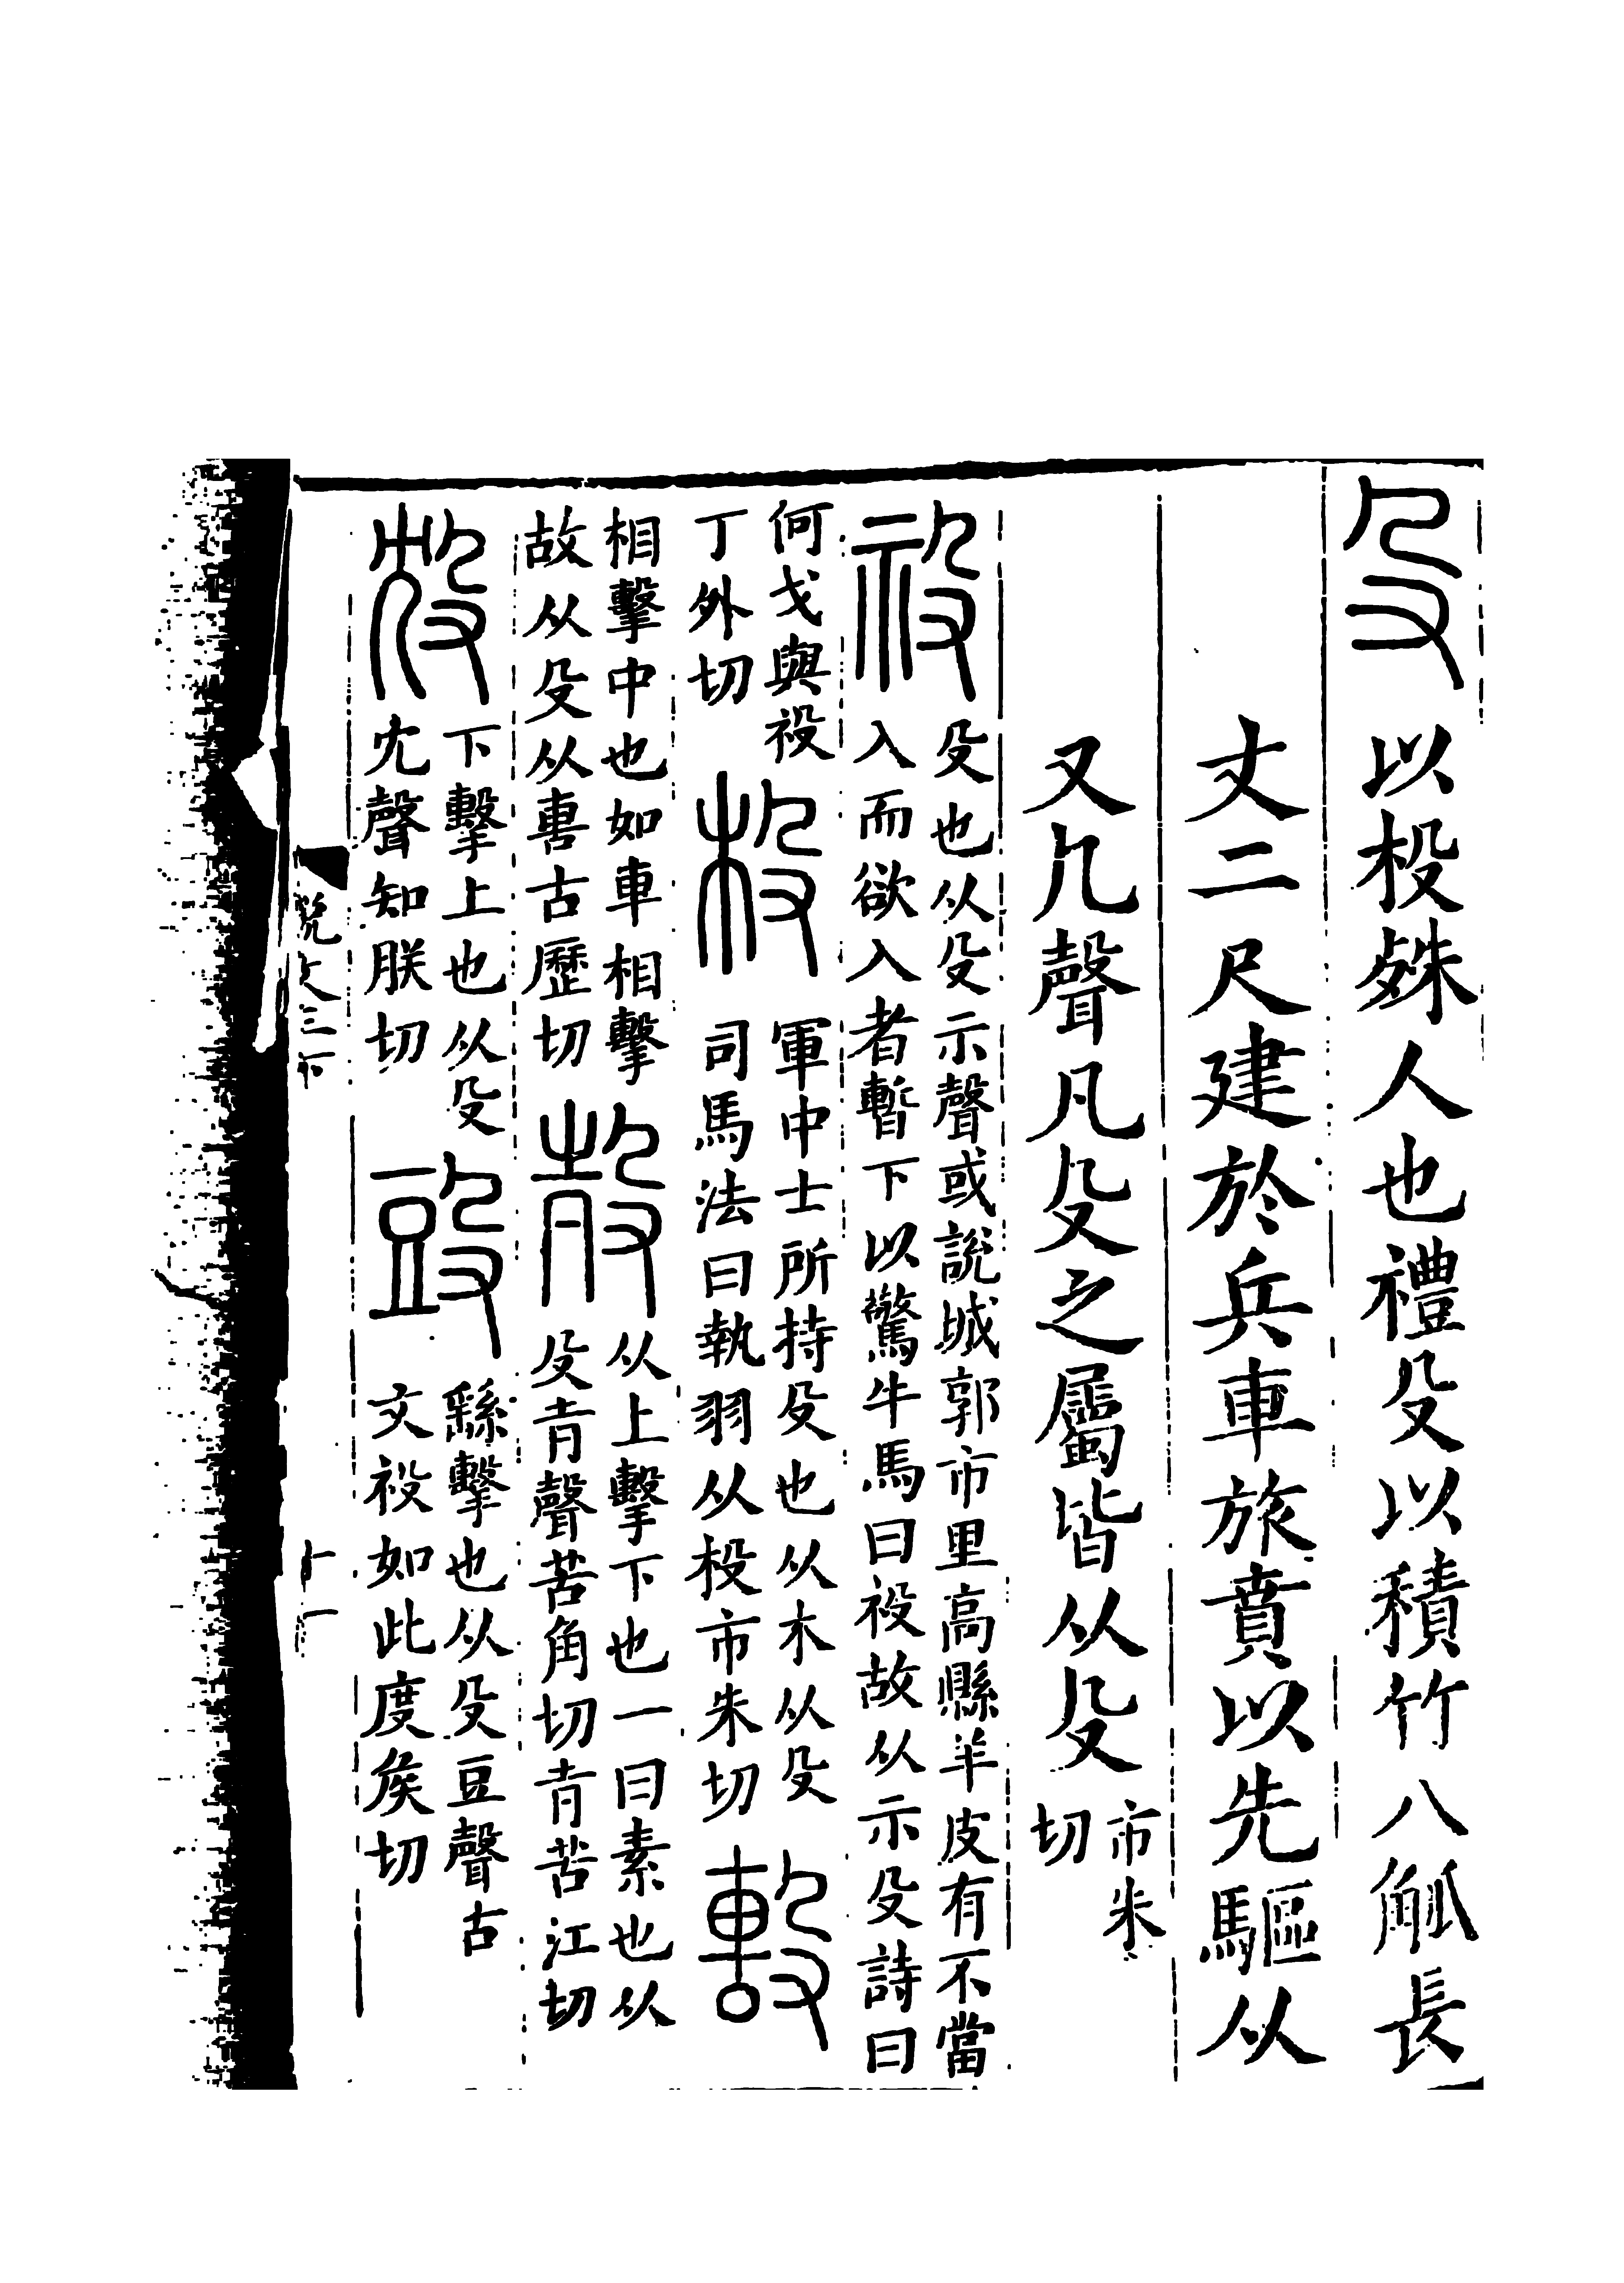 殳以杸殊人也禮殳以積竹八觚長
丈二尺建於兵車旅賁以先驅从
又𠘧聲凡殳之屬皆从殳市朱切
祋殳也从殳示聲或說城郭市里高縣羊皮有不當入而欲入者暫下以驚牛馬曰祋故从示殳詩曰
何戈與祋丁外切杸軍中士所持殳也从木从殳司馬法曰執羽从杸市朱切𣪠
相擊中也如車相擊故从殳从軎古歷切𣪊从上擊下也一曰素也从殳𡉉聲苦角切𡉉苦江切
㱽下擊上也从殳冘聲知朕切𣪌繇擊也从殳豆聲古文祋如此度矦切
說文三下
十一